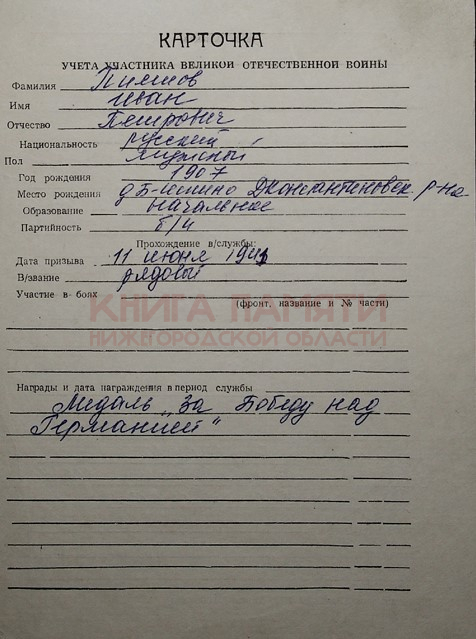 КАРТОЧКА
УЧЕТА УЧАСТНИКА ВЕЛИКОЙ ОТЕЧЕСТВЕННОЙ ВОЙНЫ
Фамилия
Имя Иван
Отчество Петрович
Национальность русский
Пол мужской
Год рождения 1907
Место рождения Д Константиновск. р-на
Образование начальное
Партийность б/п
Прохождение в/службы:
Дата призыва 11 июня
В/звание рядовый
Участие в боях
(фронт, название и № части)
КНИГА ПАМЯТИ
НИЖЕГОРОДСКОЙ ОБЛАСТИ
Награды и дата награждения в период службы
Медаль „За Победу над
Германией"